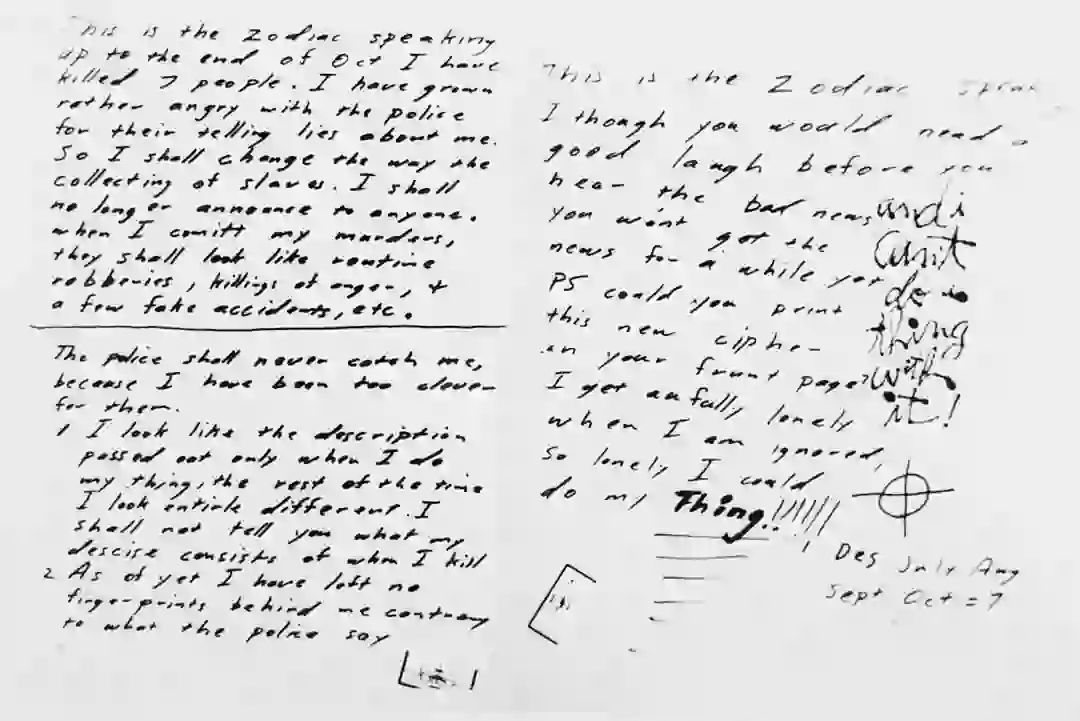 This is the Zodiac speaking
up to the end of Oct I have
killed 7 people. I have grown
rather angry with the police
for their telling lies about me.
So I shall change the way the
collecting of slaves. I shall
no longer announce to anyone.
when I comitt my murders,
they shall look like routine
robberies, killings of anger, +
a few fake accidents, etc.
The police shall never catch me,
because I have been too clever
for them.
1 I look like the description
passed out only when I do
my thing, the rest of the time
I look entirle different. I
shall not tell you what my
descise consists of when I kill
2 As of yet I have left no
fingerprints behind me contrary
to what the police say
This is the Zodiac speak
I though you would need a
good laugh before you
hear the bad news
you won't get the
news for a while yet
PS could you print
this new cipher
in your frunt page?
I get awfully lonely
when I am ignored,
So lonely I could
do my Thing!!!!!!
and i
cant
do a
thing
with
it!
Des July Aug
Sept Oct = 7